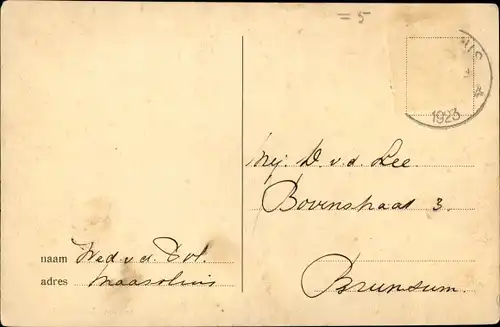 = 5
UIS
4
1923
Mej. D. v. d. Lee.
Bovenstraat 3.
Brunsum.
naam Wed. v. d. Pol.
adres Maassluis